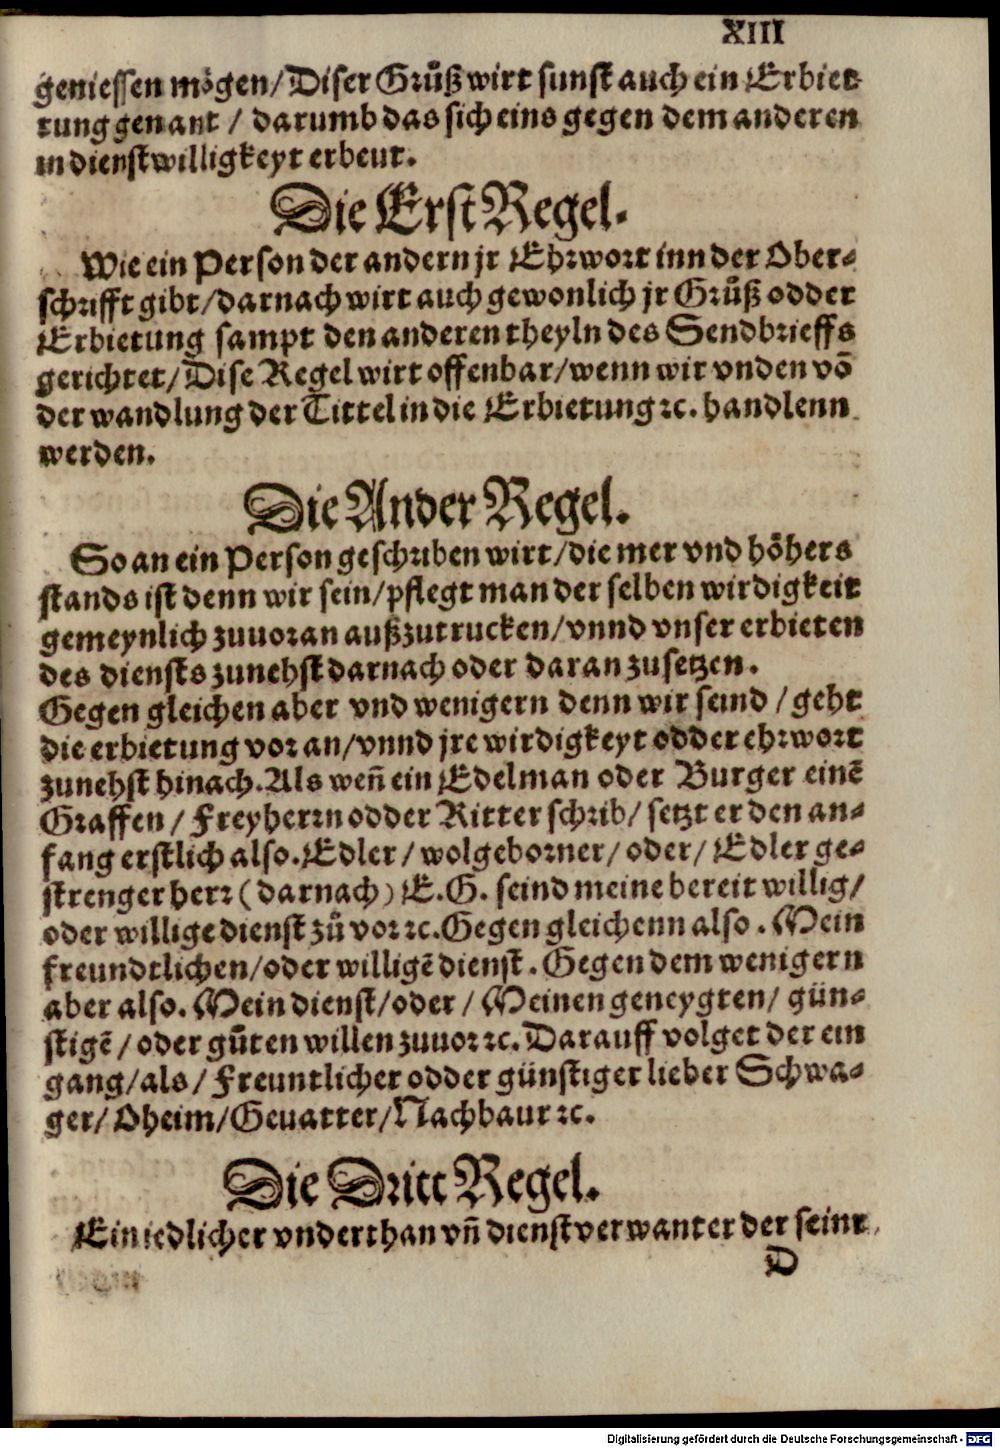 XIII
geniessen mögen/Diser Grůß wirt sunst auch ein Erbiet-
tung genant / darumb das sich eins gegen dem anderen
in dienstwilligkeyt erbeut.
Die Erst Regel.
Wie ein Person der andern jr Ehrwort inn der Ober-
schrifft gibt/darnach wirt auch gewonlich jr Grůß odder
Erbietung sampt den anderen theyln des Sendbrieffs
gerichtet/Dise Regel wirt offenbar/wenn wir vnden võ
der wandlung der Tittel in die Erbietung ꝛc. handlenn
werden.
Die Ander Regel.
So an ein Person geschriben wirt/die mer vnd höhers
stands ist denn wir sein/pflegt man der selben wirdigkeit
gemeynlich zuuoran außzutrucken/vnnd vnser erbieten
des diensts zunehst darnach oder daran zusetzen.
Gegen gleichen aber vnd wenigern denn wir seind /geht
die erbietung voran/vnnd jre wirdigkeyt odder ehrwort
zunehst hinach.Als weñ ein Edelman oder Burger einẽ
Graffen / Freyherrn odder Ritter schrib/ setzt er den an-
fang erstlich also.Edler / wolgeborner/ oder/ Edler ge-
strenger herr (darnach) E.G. seind meine bereit willig/
oder willige dienst zů vor ꝛc.Gegen gleichenn also . Mein
freundtlichen/oder willigẽ dienst . Gegen dem wenigern
aber also. Mein dienst/oder / Meinen geneygten/ gün-
stigẽ / oder gůten willen zuuor ꝛc. Darauff volget der ein
gang/als/ Freuntlicher odder günstiger lieber Schwa-
ger/ Oheim/Geuatter/Nachbaur ꝛc.
Die Dritt Regel.
Ein iedlicher vnderthan vñ dienstverwanter der seint
D
Digitalisierung gefördert durch die Deutsche Forschungsgemeinschaft - DFG